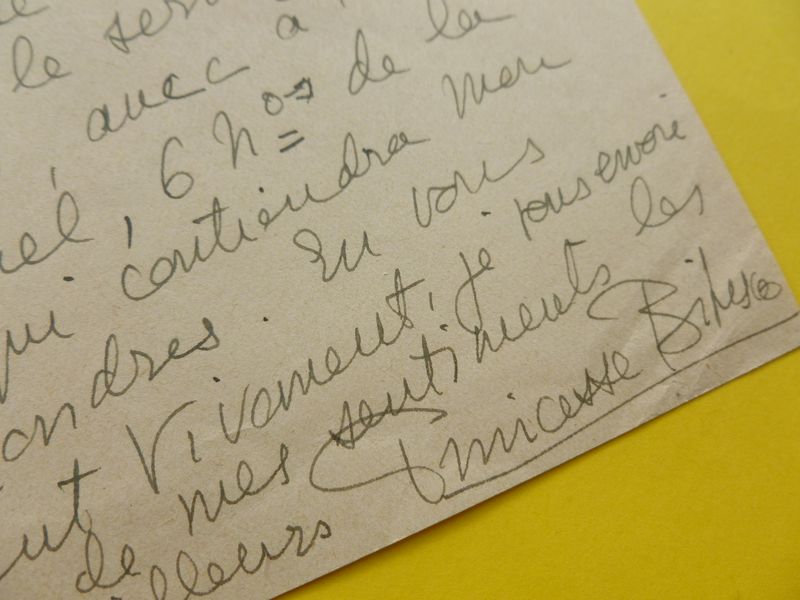 le
, avec
, 6 nos de la
qui contiendra mon
ondres. En vous
Vivament, je vous envoie
de mes sentiments les
illeurs Princesse Bibesco